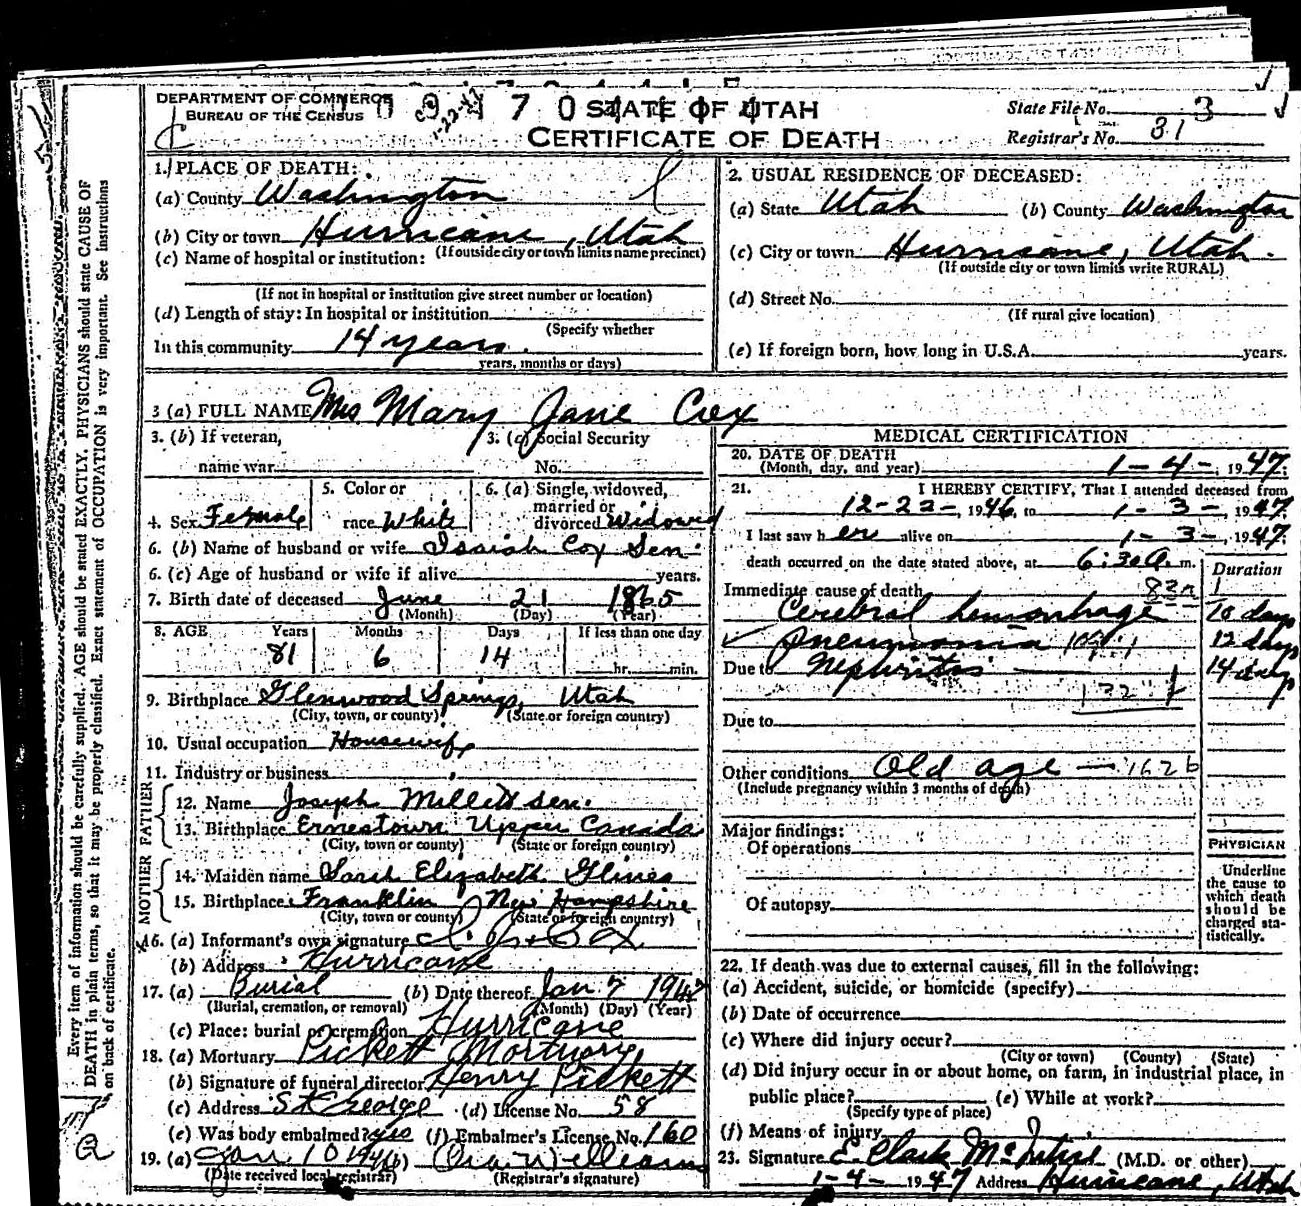 DEPARTMENT OF COMMERCE
BUREAU OF THE CENSUS
1-22-47
STATE OF UTAH
CERTIFICATE OF DEATH
State File No. 3
Registrar's No. 31
1. PLACE OF DEATH:
(a) County Washington
(b) City or town Hurricane, Utah
(If outside city or town limits name precinct)
(c) Name of hospital or institution:
(If not in hospital or institution give street number or location)
(d) Length of stay: In hospital or institution
(Specify whether
In this community 14 years
years, months or days)
2. USUAL RESIDENCE OF DECEASED:
(a) State Utah (b) County Washington
(c) City or town Hurricane, Utah.
(If outside city or town limits write RURAL)
(d) Street No.
(If rural give location)
(e) If foreign born, how long in U.S.A. years.
3 (a) FULL NAME Mrs Mary Jane Cox
3. (b) If veteran,
name war
3. (c) Social Security
No.
4. Sex Female
5. Color or
race White
6. (a) Single, widowed,
married or
divorced Widowed
6. (b) Name of husband or wife Isaiah Cox Sen.
6. (c) Age of husband or wife if alive years.
7. Birth date of deceased June 21 1865
(Month) (Day) (Year)
8. AGE Years Months Days If less than one day
81 6 14 hr. min.
9. Birthplace Glenwood Springs, Utah
(City, town, or county) (State or foreign country)
10. Usual occupation Housewife
11. Industry or business
FATHER
12. Name Joseph Millett Sen.
13. Birthplace Ernestown Upper Canada
(City, town or county) (State or foreign country)
MOTHER
14. Maiden name Sarah Elizabeth Glines
15. Birthplace Franklin New Hampshire
(City, town or county) (State or foreign country)
16. (a) Informant's own signature Cox
(b) Address Hurricane
17. (a) Burial (b) Date thereof Jan 7 1947
(Burial, cremation, or removal) (Month) (Day) (Year)
(c) Place: burial or cremation Hurricane
18. (a) Mortuary Pickett Mortuary
(b) Signature of funeral director Henry Pickett
(c) Address St George (d) License No. 58
(e) Was body embalmed? yes (f) Embalmer's License No. 160
19. (a) Jan 10 (b) Williams
(Date received local registrar) (Registrar's signature)
MEDICAL CERTIFICATION
20. DATE OF DEATH
(Month, day, and year) 1-4-, 1947.
21. I HEREBY CERTIFY, That I attended deceased from
12-22-, 1946, to 1-3-, 1947
I last saw her alive on 1-3-, 1947.
death occurred on the date stated above, at 6:30 A. m.
Duration
Immediate cause of death 83a
Cerebral hemorrhage 10 days
pneumonia 12 days
Due to Nephritis 14 days
132
Due to
Other conditions Old age — 162b
(Include pregnancy within 3 months of death)
Major findings:
Of operations
Of autopsy
PHYSICIAN
Underline
the cause to
which death
should be
charged sta-
tistically.
22. If death was due to external causes, fill in the following:
(a) Accident, suicide, or homicide (specify)
(b) Date of occurrence
(c) Where did injury occur?
(City or town) (County) (State)
(d) Did injury occur in or about home, on farm, in industrial place, in
public place? (e) While at work?
(Specify type of place)
(f) Means of injury
23. Signature E. Clark McIntire (M.D. or other)
1-4- 1947 Address Hurricane, Utah
Every item of information should be carefully supplied. AGE should be stated EXACTLY. PHYSICIANS should state CAUSE OF
DEATH in plain terms, so that it may be properly classified. Exact statement of OCCUPATION is very important. See instructions
on back of certificate.